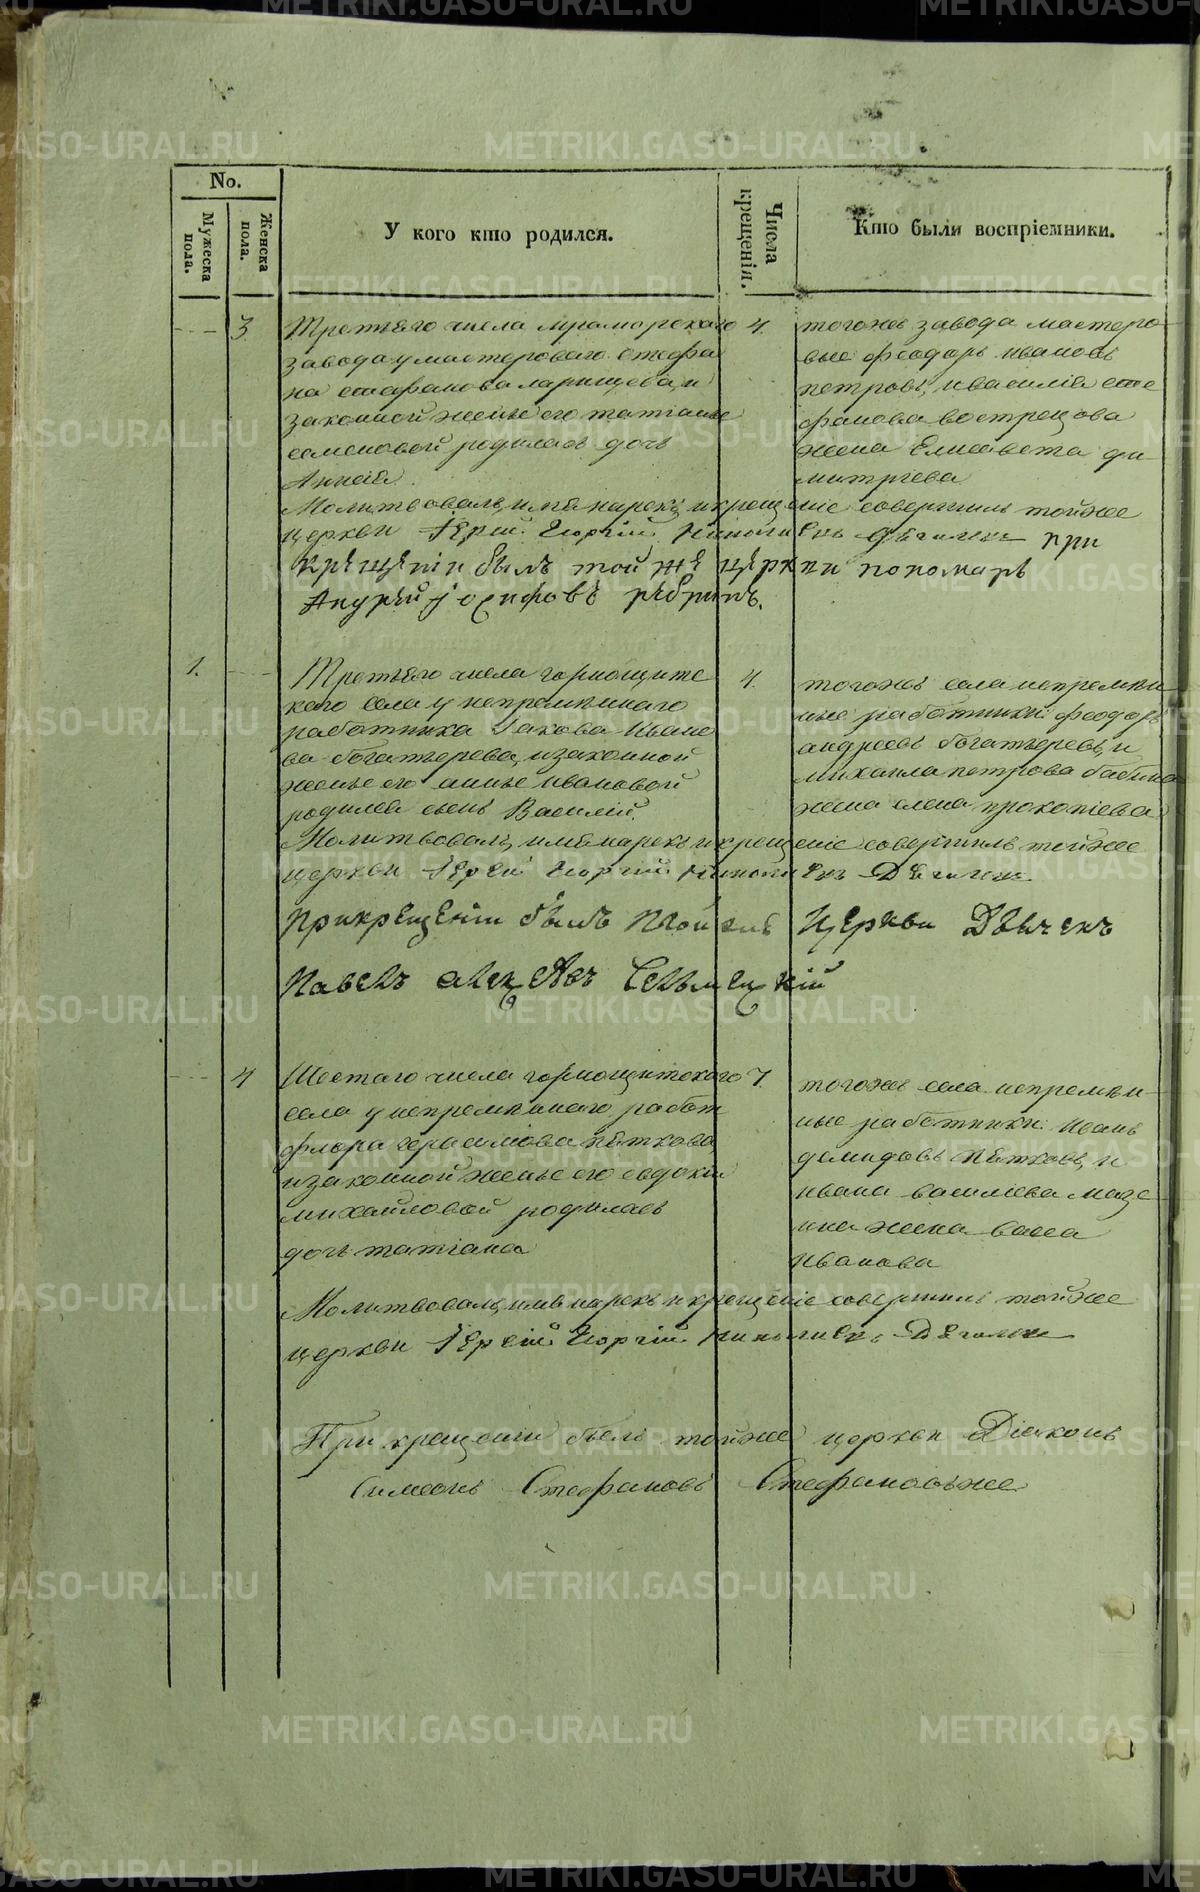 No.
Мужеска пола.
Женска пола.
У кого кто родился.
Числа крещенія.
Кто были воспріемники.
3
Третьяго числа мраморскаго
завода у мастероваго стефа
на стефанова ларищева, и
законной жены его татіаны
семеновой родилась дочь
Анна
4.
тогожъ завода мастеро-
вые феодоръ ивановъ
петровъ, и василія сте
фанова вострецова
жена Елисавета ди-
митріева
Молитвовалъ, имя нарекъ, и крещеніе совершилъ тойже
церкви Іерей Георгій при
крещеніи былъ той же церкви пономарь
Андрей Іосифовъ рѣбринъ.
1.
Третьяго числа горнощитс
каго села у непремѣннаго
работника Іакова Ивано
ва богатырева, и законной
жены его анны ивановой
родился сынъ Василій.
4.
тогожъ села непремѣн
ные работники феодоръ
андреевъ богатыревъ, и
михаила петрова бабина
жена елена прокопіева
Молитвовалъ, имя нарекъ и крещеніе совершилъ тойже
церкви Іерей Георгій
При крещеніи былъ тойже Церкви Дьячекъ
Павелъ
4
Шестаго числа горнощитскаго
села у непремѣннаго работ
флора герасимова пяткова,
и законной жены его евдокіи
михайловой родилась
дочь татіана
7.
тогожъ села непремѣн-
ные работники: иванъ
демидовъ Пятковъ, и
ивана василіева мазе
ина жена васса
иванова
Молитвовалъ, имя нарекъ и крещеніе совершилъ тойже
церкви Іерей Георгій
При крещеніи былъ тойже церкви Діаконъ
Симеонъ Стефановъ
METRIKI.GASO-URAL.RU